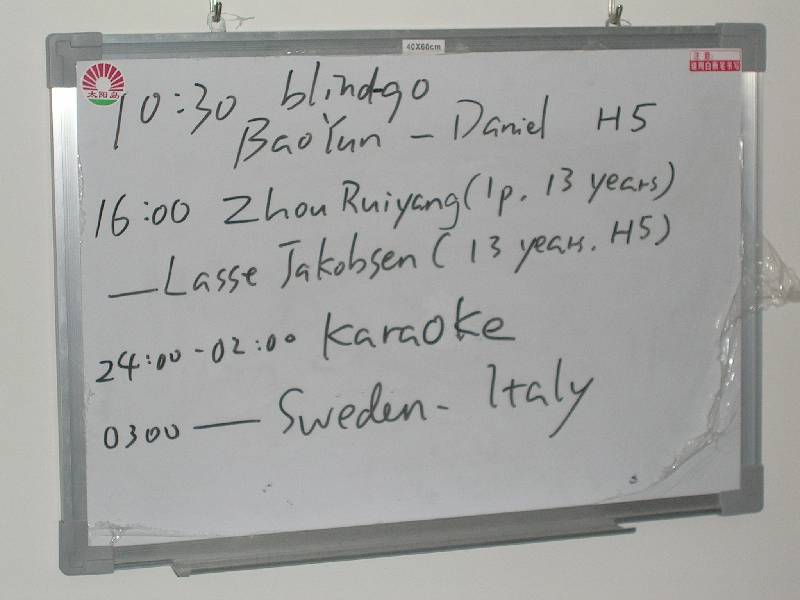 40X60cm
太阳岛
注意
请用白板笔书写
10:30 blindgo
BaoYun - Daniel H5
16:00 Zhou Ruiyang (1p. 13 years)
— Lasse Jakobsen (13 years. H5)
24:00 - 02:00 Karaoke
0300 — Sweden - Italy